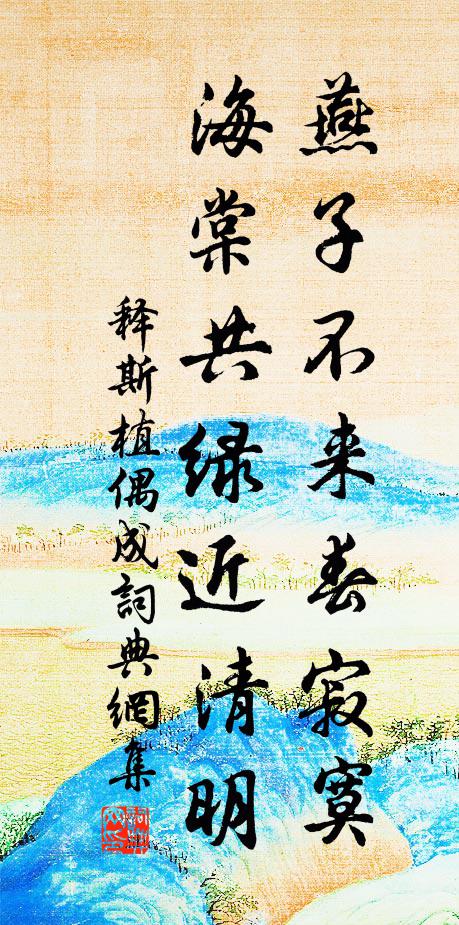 燕子不来春寂寞
海棠共绿近清明
释斯植偶成詞典網集